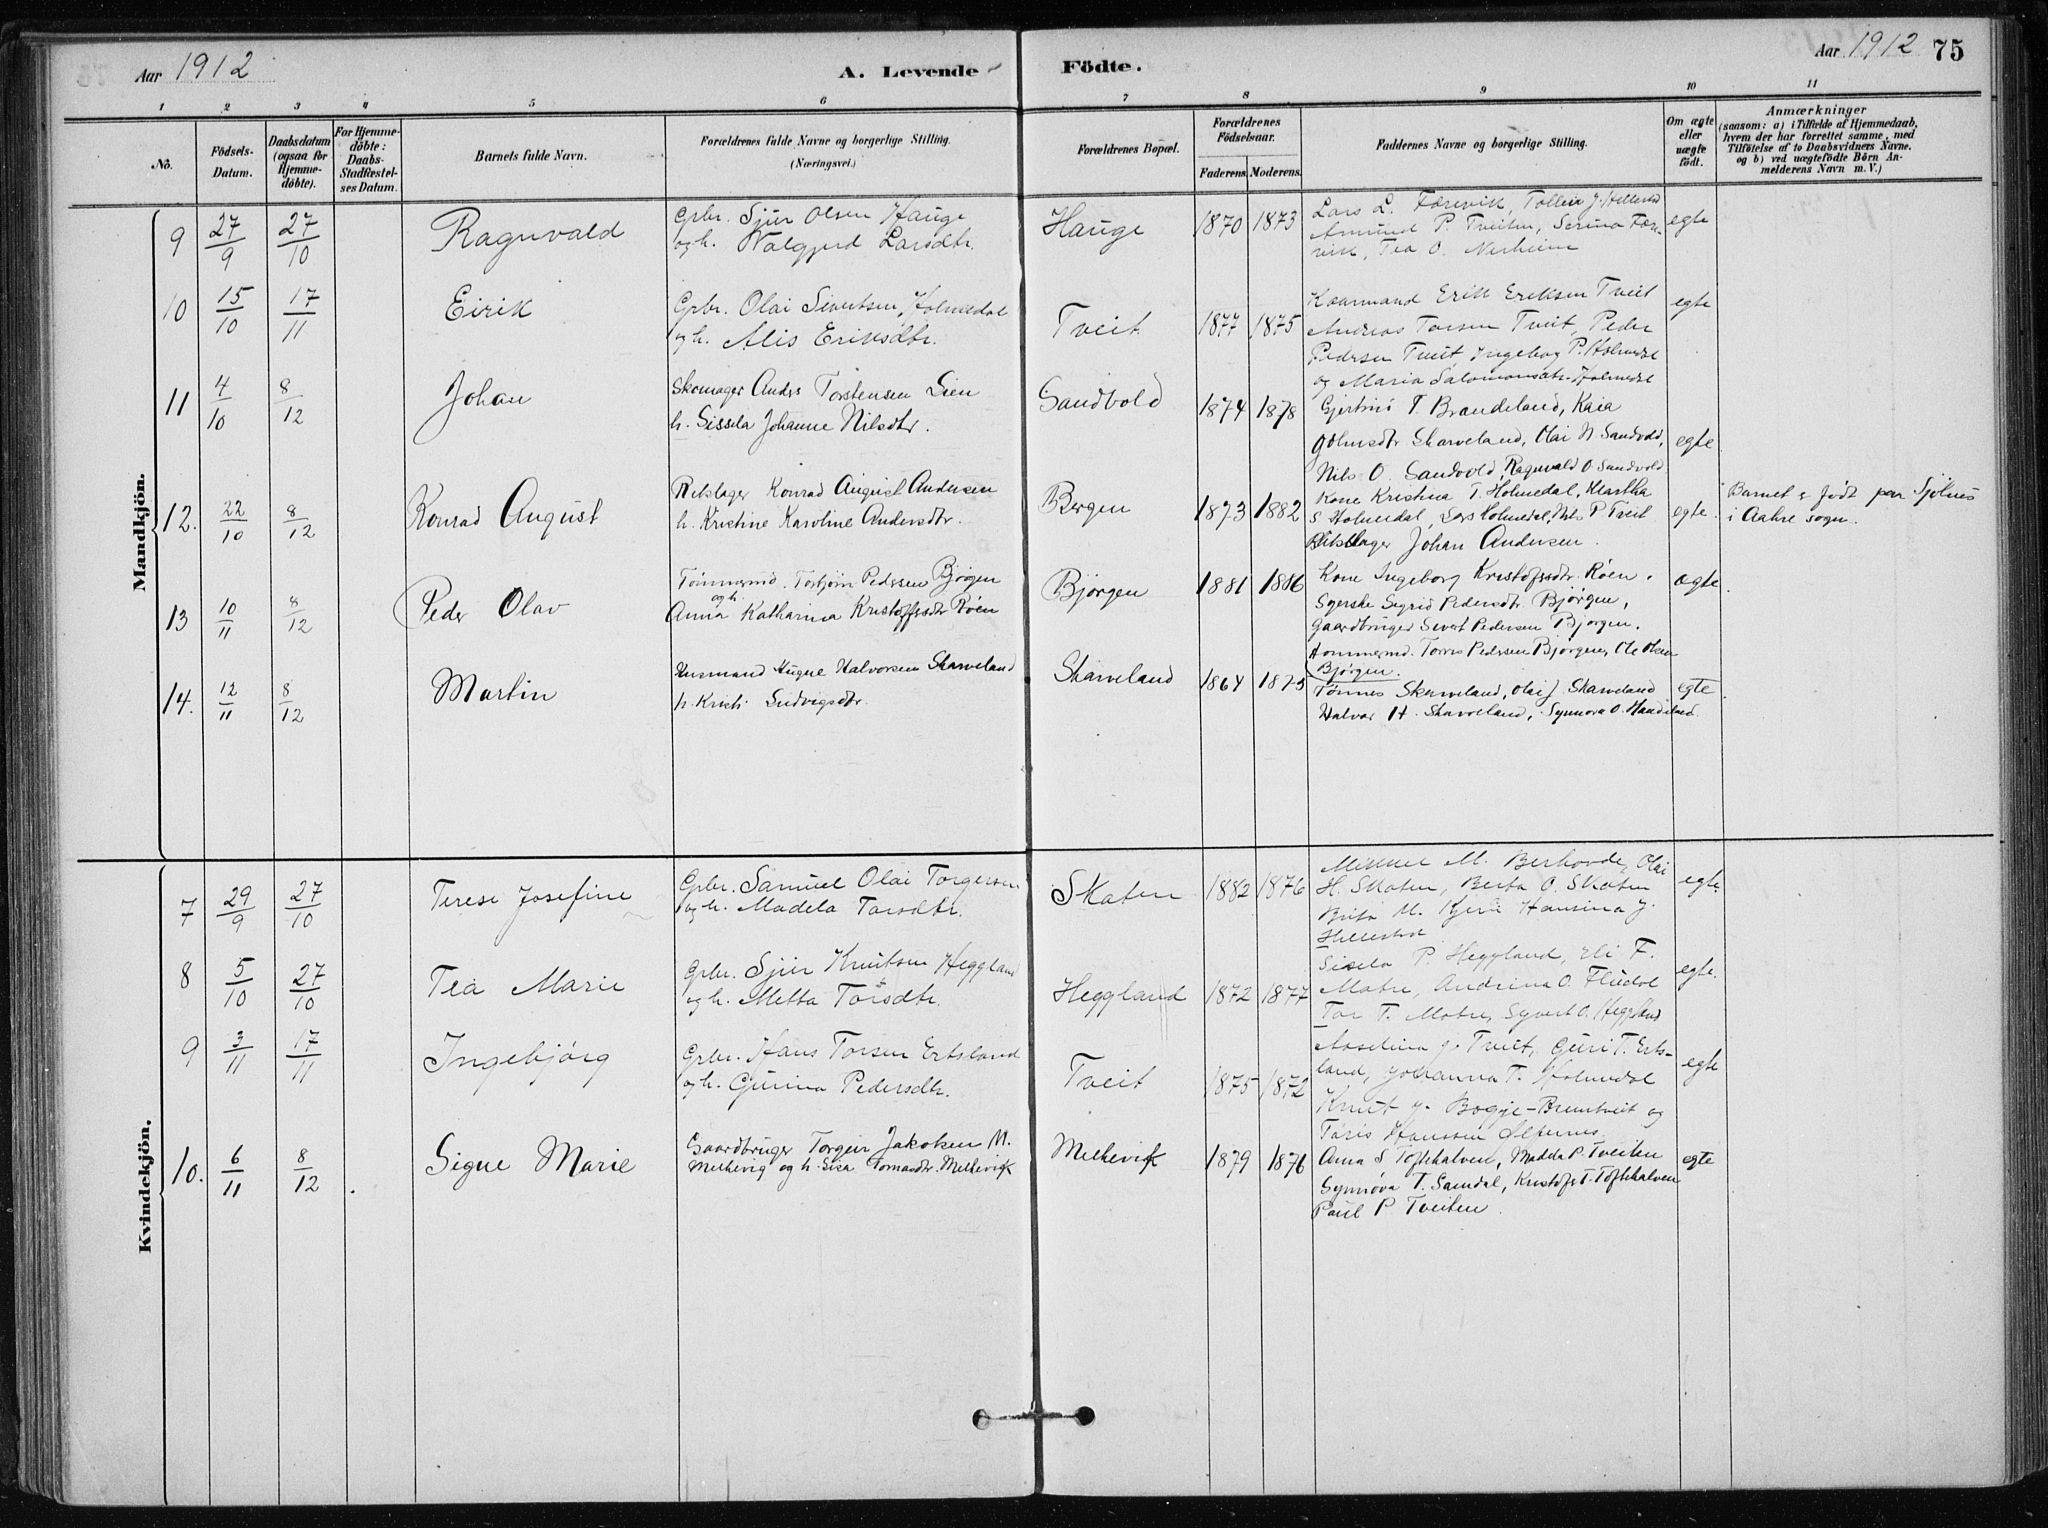 Aar 1912
A. Levende
Födte.
Aar 1912
75
1 2 3 4 5 6 7 8 9 10 11
No.
Födsels-
Datum.
Daabsdatum
(ogsaa for
Hjemme-
döbte).
For Hjemme-
döbte:
Daabs-
Stadfæstel-
ses Datum.
Barnets fulde Navn.
Forældrenes fulde Navne og borgerlige Stilling.
(Næringsvei.)
Forældrenes Bopæl.
Forældrenes
Födselsaar.
Faderens.
Moderens.
Faddernes Navne og borgerlige Stilling.
Om ægte
eller
uægte
födt.
Anmærkninger
(saasom: a) i Tilfælde af Hjemmedaab,
hvem der har forrettet samme, med
Tilföielse af to Daabsvidners Navne,
og b) ved uægtefödte Börn An-
melderens Navn m. V.)
Mandkjön.
9 27/9 27/10 Ragnvald
Grbr. Sjur Olsen Hauge
og h. Valgjerd Larsdtr.
Hauge 1870 1873
Lars L. Færevik, Tollen J. Hellestad
Amund P. Tveiten, Serina Fær-
vik, Tea O. Nerheim
egte
10 15/10 17/11 Eirik
Grbr. Olai Sivertsen Holmedal
og h. Alis Eriksdtr.
Tveit 1877 1875
Kaarmand Erik Eriksen Tveit
Andreas Torsen Tveit, Peder
Pedersen Tveit Ingeborg P. Holmedal
og Maria Salomonsdtr. Holmedal
egte
11 4/10 8/12 Johan
Skomager Anders Torstensen Lien
h. Sissela Johanne Nilsdtr.
Sandvold 1874 1878
Gjertine T. Brandeland, Kaia
Johnsdtr Skarveland, Olai N Sandvold,
Nils O. Sandvold Ragnvald O. Sandvold
egte
12. 22/10 8/12 Konrad August
Rebslager Konrad August Andersen
h. Kristine Karoline Andersdtr.
Bergen 1873 1882
Kone Kristina T. Holmedal, Martha
S Holmedal, Lars Holmedal, Nils P Tveit
Rebslager Johan Andersen.
egte.
Barnet e født paa Sjølnes
i Aakre sogn.
13 10/11 8/12 Peder Olav
Tømmermd. Torbjørn Pedersen Bjørgen
og h.
Anna Katharina Kristoffersdtr Røen
Bjørgen 1881 1886
Kone Ingeborg Kristofersdtr. Røen.
Syerske Sigrid Pedersdtr. Bjørgen,
Gaardbruger Sivert Pedersen Bjørgen.
Tommermd. Torris Pedersen Bjørgen, Ole Olsen
Bjørgen.
ægte.
14. 12/11 8/12 Martin
Husmand Mugne Halvorsen Skarveland
h. Kristi Ludvigsdtr.
Skarveland 1864 1875
Tønnes Skarveland, Olai J Skarveland
Halvor H. Skarveland, Synnøva O. Handeland.
egte.
Kvindekjön.
7 29/9 27/10 Terese Josefine
Grbr. Samuel Olai Torgersen
og h. Madela Torsdtr.
Skaten 1882 1876
Mikkel M. Berhovde, Olai
H. Skaten, Berta O. Skaten
Brita M. Hansina J.
Hellestad
egte.
8 5/10 27/10 Tea Marie
Grbr. Sjur Knutsen Heggland
og h. Metta Torsdtr.
Heggland 1872 1877
Sisela P. Heggland, Eli T.
Matre, Andrina O. Fludal
Tor T. Matre, Syvert O. Heggland
egte.
9 3/11 17/11 Ingebjörg
Grbr. Hans Torsen Ertsland
og h. Gjurina Pedersdtr.
Tveit 1875 1872
Aaselina J. Tveit, Guri T. Erts-
land, Johanna T. Holmedal
Knut J. Bogje-Bremtveit og
Taris Hanssen
egte
10. 6/11 8/12 Signe Marie
Gaardbruger Torgeir Jakobsen M.
Melkevig og h. Sisa Tomasdtr. Melkevik
Melkevik 1879 1876
Anna S Toftehalven, Madela P. Tveiten
Synnøva T. Samdal, Kristofer T. Toftehalven
Paul P Tveiten.
egte